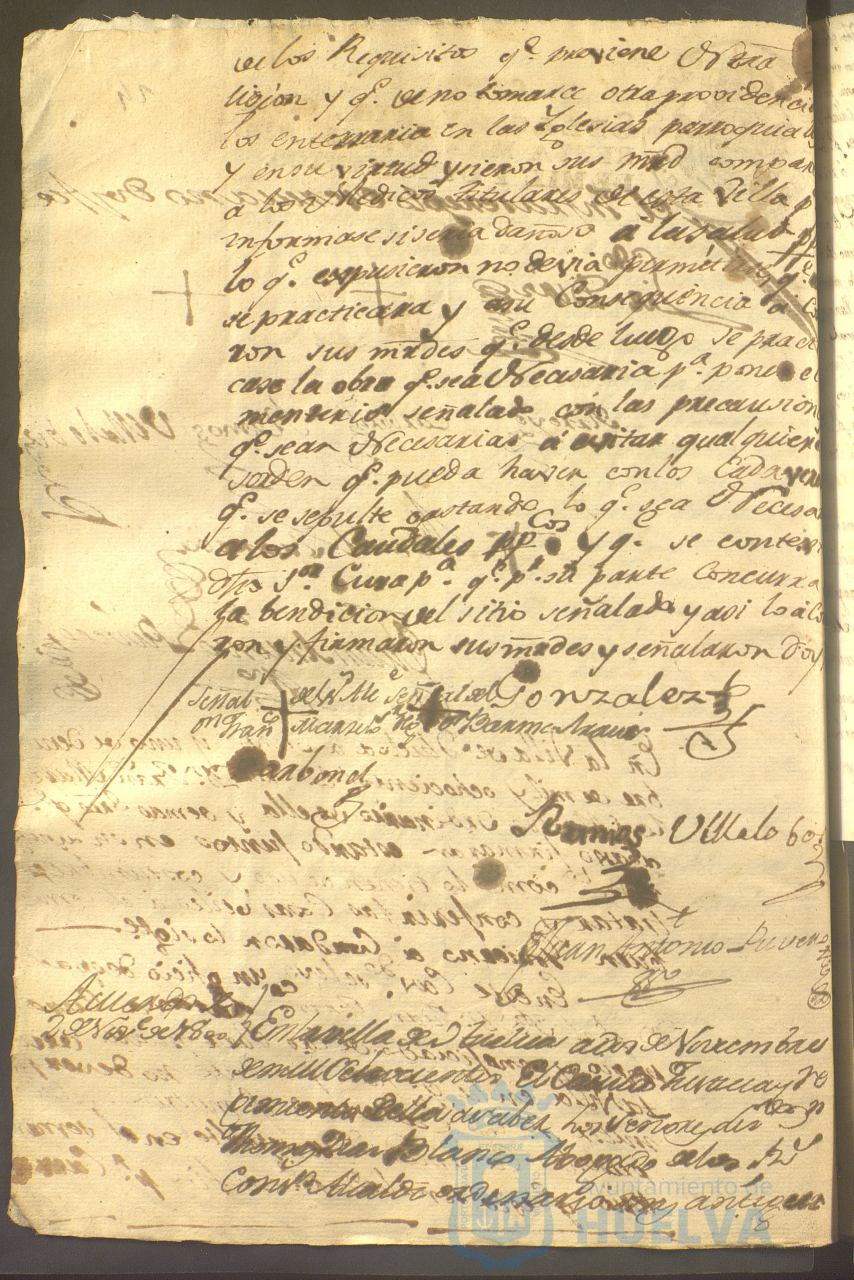 de los Requisitos q.e previene Ntra
ligion y q.e de no tomarce otra providencia
los enterraria en las Yglesias parroquia
y en su virtud ysieron sus mrd compar
a los Medicos titulares de esta Villa p
informase si seria dañoso a la salud p
lo q.e expusieron no devia permitir q.e
se practicara y en su Consequencia a
ron sus mrdes q.e desde luego se prac
case la obra q.e sea Necesaria p.a poner el
menterio señalado con las precausion
q.e sean Necesarias a evitar qualquier
sorden q.e pueda haver con los Cadaver
q.e se sepulte gastando lo q.e sea Necesa
a los Caudales pp.cos y q.e se conteste
dho S.or Cura p.a q.e p.r su parte Concurra
la bendicion del sitio señalado y asi lo ac
ron y firmaron sus mrdes y señalaron doy
Señal de señal del Gonzalez
Fran.co Marques
Carbonel
Ramos Villalobos
Juan Antonio Rivero
2 de Nov.e de 1800
En la villa de Huelva a dos de Noviembre
de mill Ochocientos El Consejo Justicia y Re
gimiento de ella asaber los Señores Lizd.o Dn
Thomas Diaz Blanco Abogado de los R.s
Cons.s Alcalde
Ayuntamiento de
HUELVA